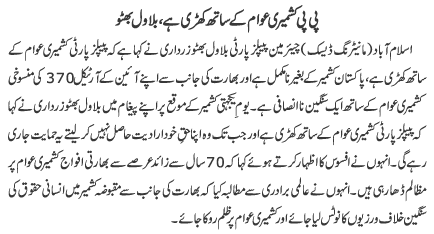 پی پی کشمیری عوام کے ساتھ کھڑی ہے، بلاول بھٹو
اسلام آباد (مانیٹرنگ ڈیسک) چیئرمین پیپلز پارٹی بلاول بھٹو زرداری نے کہا ہے کہ پیپلز پارٹی کشمیری عوام کے
ساتھ کھڑی ہے، پاکستان کشمیر کے بغیر نامکمل ہے اور بھارت کی جانب سے اپنے آئین کے آرٹیکل 370 کی منسوخی
کشمیری عوام کے ساتھ ایک سنگین ناانصافی ہے۔ یوم یکجہتی کشمیر کے موقع پر اپنے پیغام میں بلاول بھٹو زرداری نے کہا
کہ پیپلز پارٹی کشمیری عوام کے ساتھ کھڑی ہے اور جب تک وہ اپنا حق خود ارادیت حاصل نہیں کر لیتے یہ حمایت جاری
رہے گی۔ انہوں نے افسوس کا اظہار کرتے ہوئے کہا کہ 70 سال سے زائد عرصے سے بھارتی افواج کشمیری عوام پر
مظالم ڈھا رہی ہیں۔ انہوں نے عالمی برادری سے مطالبہ کیا کہ بھارت کی جانب سے مقبوضہ کشمیر میں انسانی حقوق کی
سنگین خلاف ورزیوں کا نوٹس لیا جائے اور کشمیری عوام پر ظلم روکا جائے۔